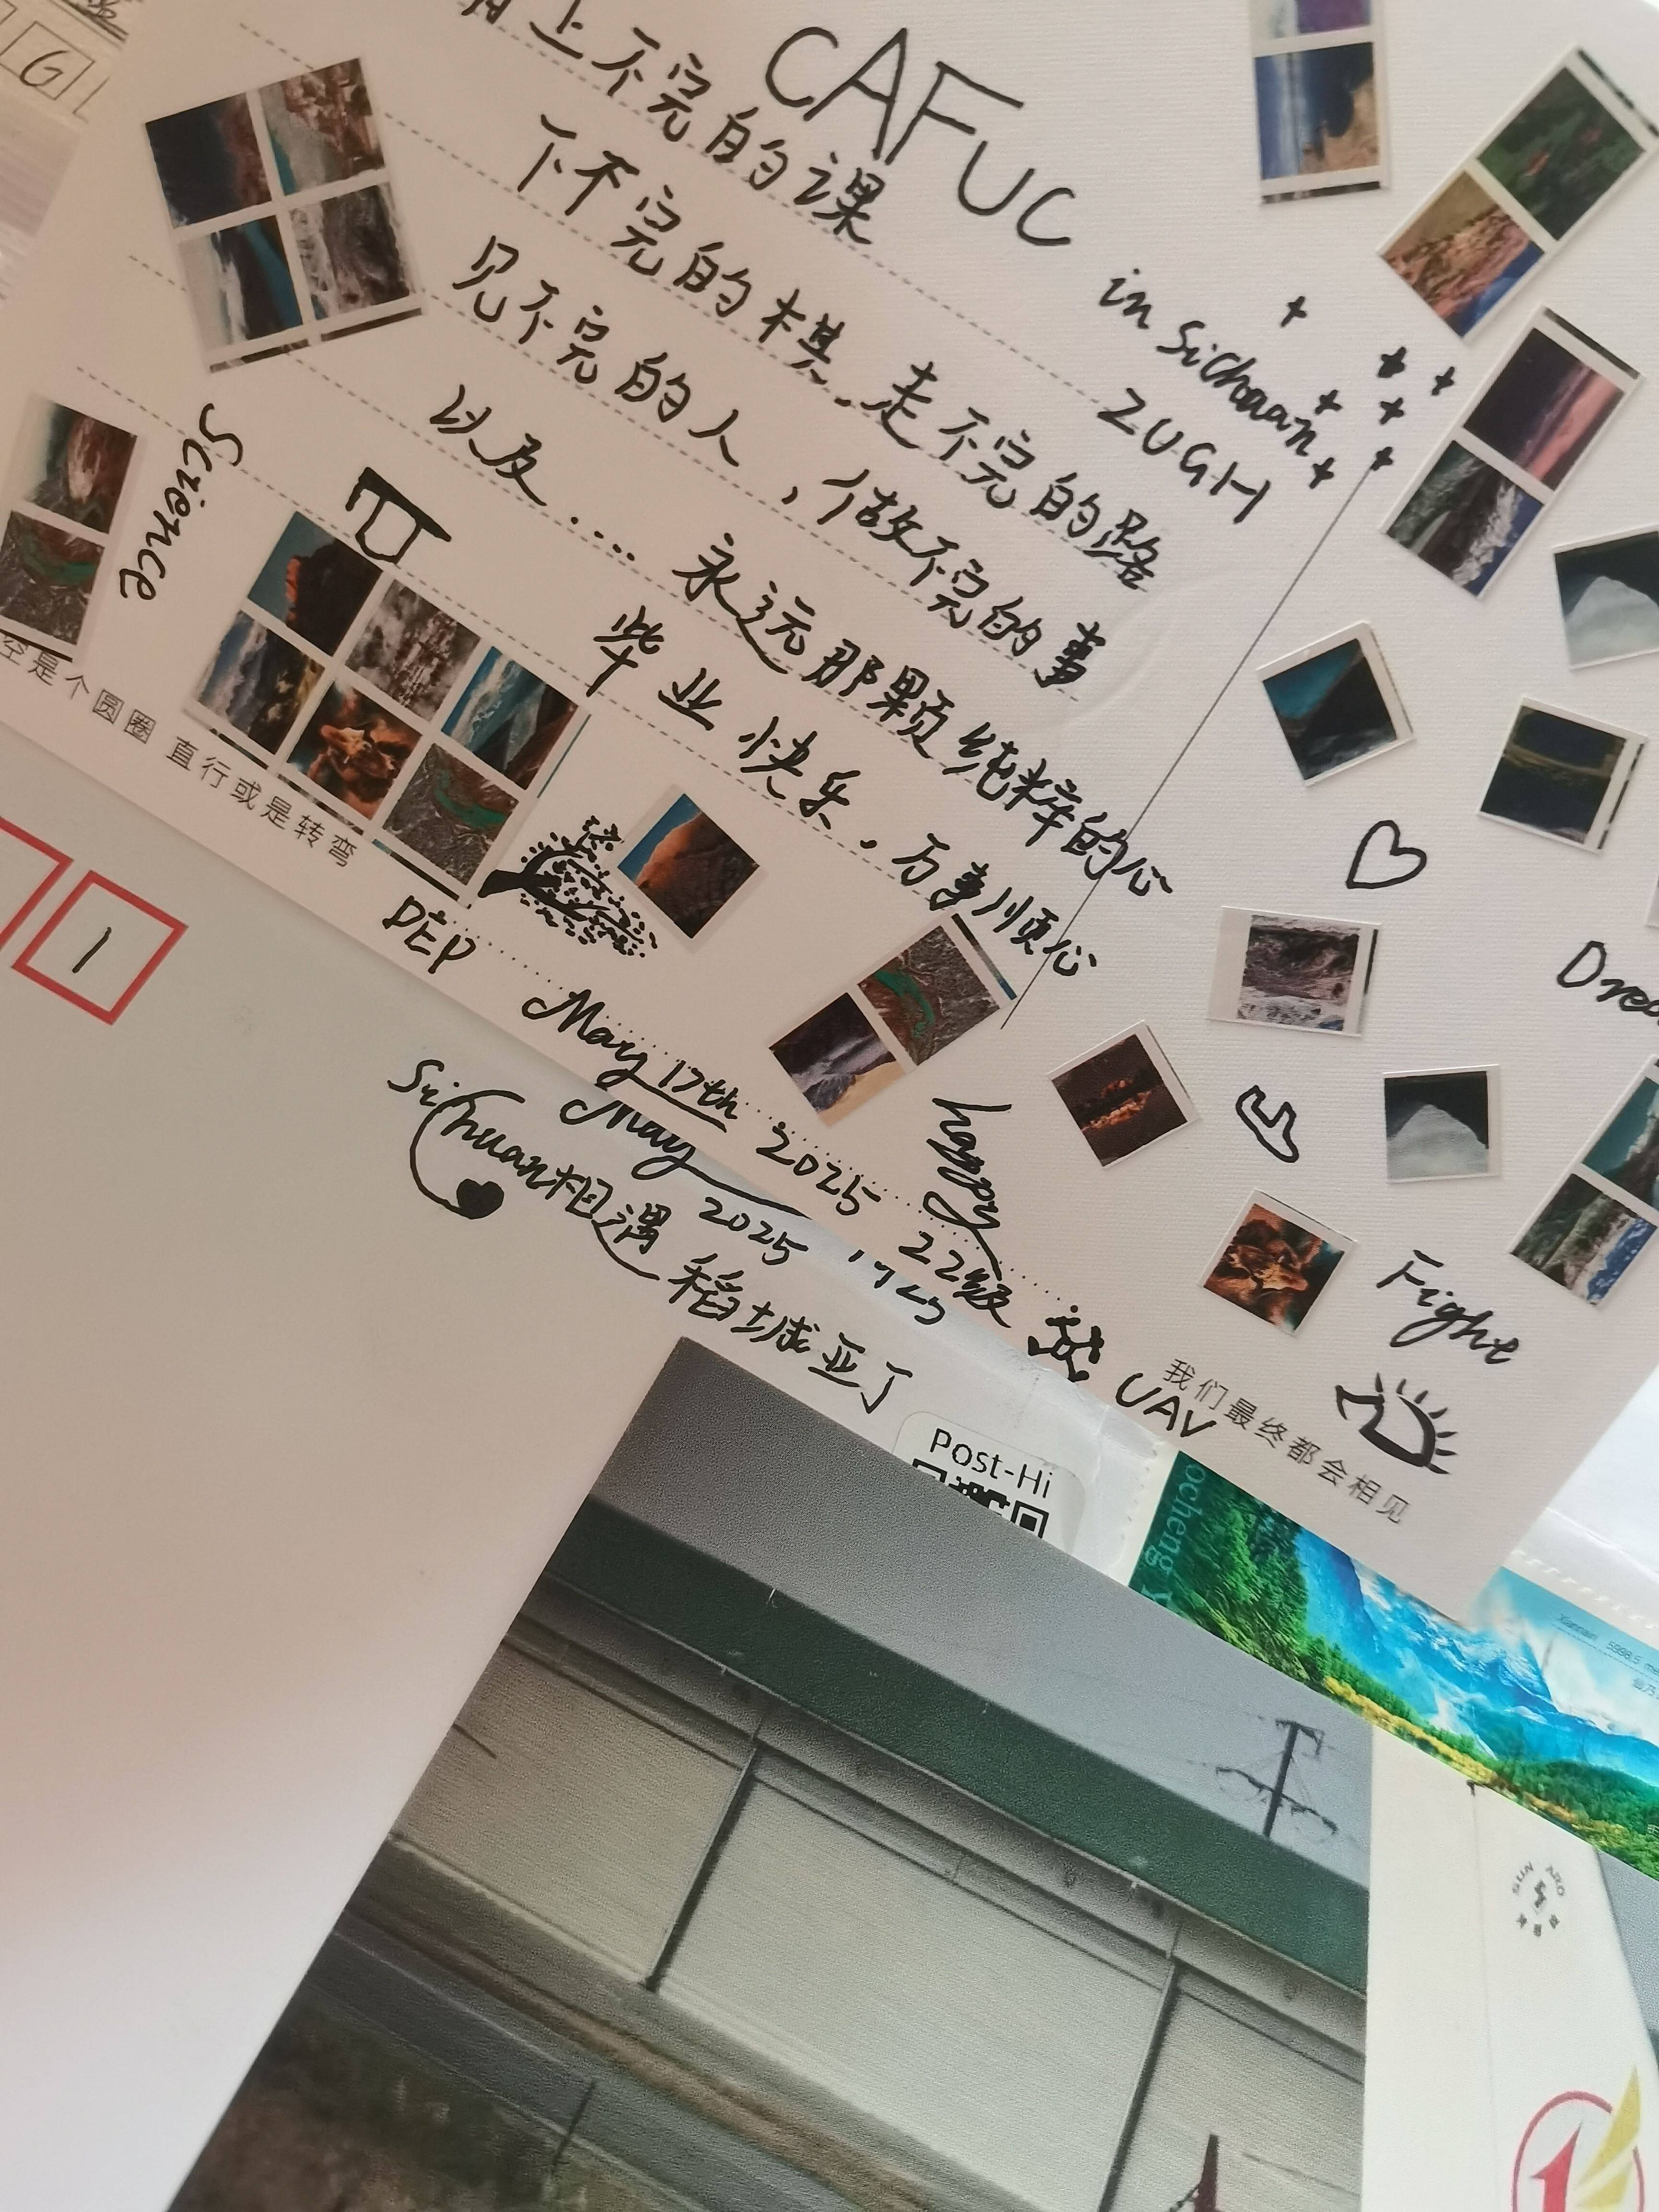 G
CAFUC
上不完的课
in Sichuan
ZUGH
下不完的棋、走不完的路
见不完的人,做不完的事
以及... 永远那颗纯粹的心
毕业快乐,万事顺心
Science
空是个圆圈 直行或是转弯
PEP
May 17th 2025
happy
22级
UAV
Fight
我们最终都会相见
1
May 2025
Sichuan相遇 稻城亚丁
Post-Hi
ocheng Y
5998.5